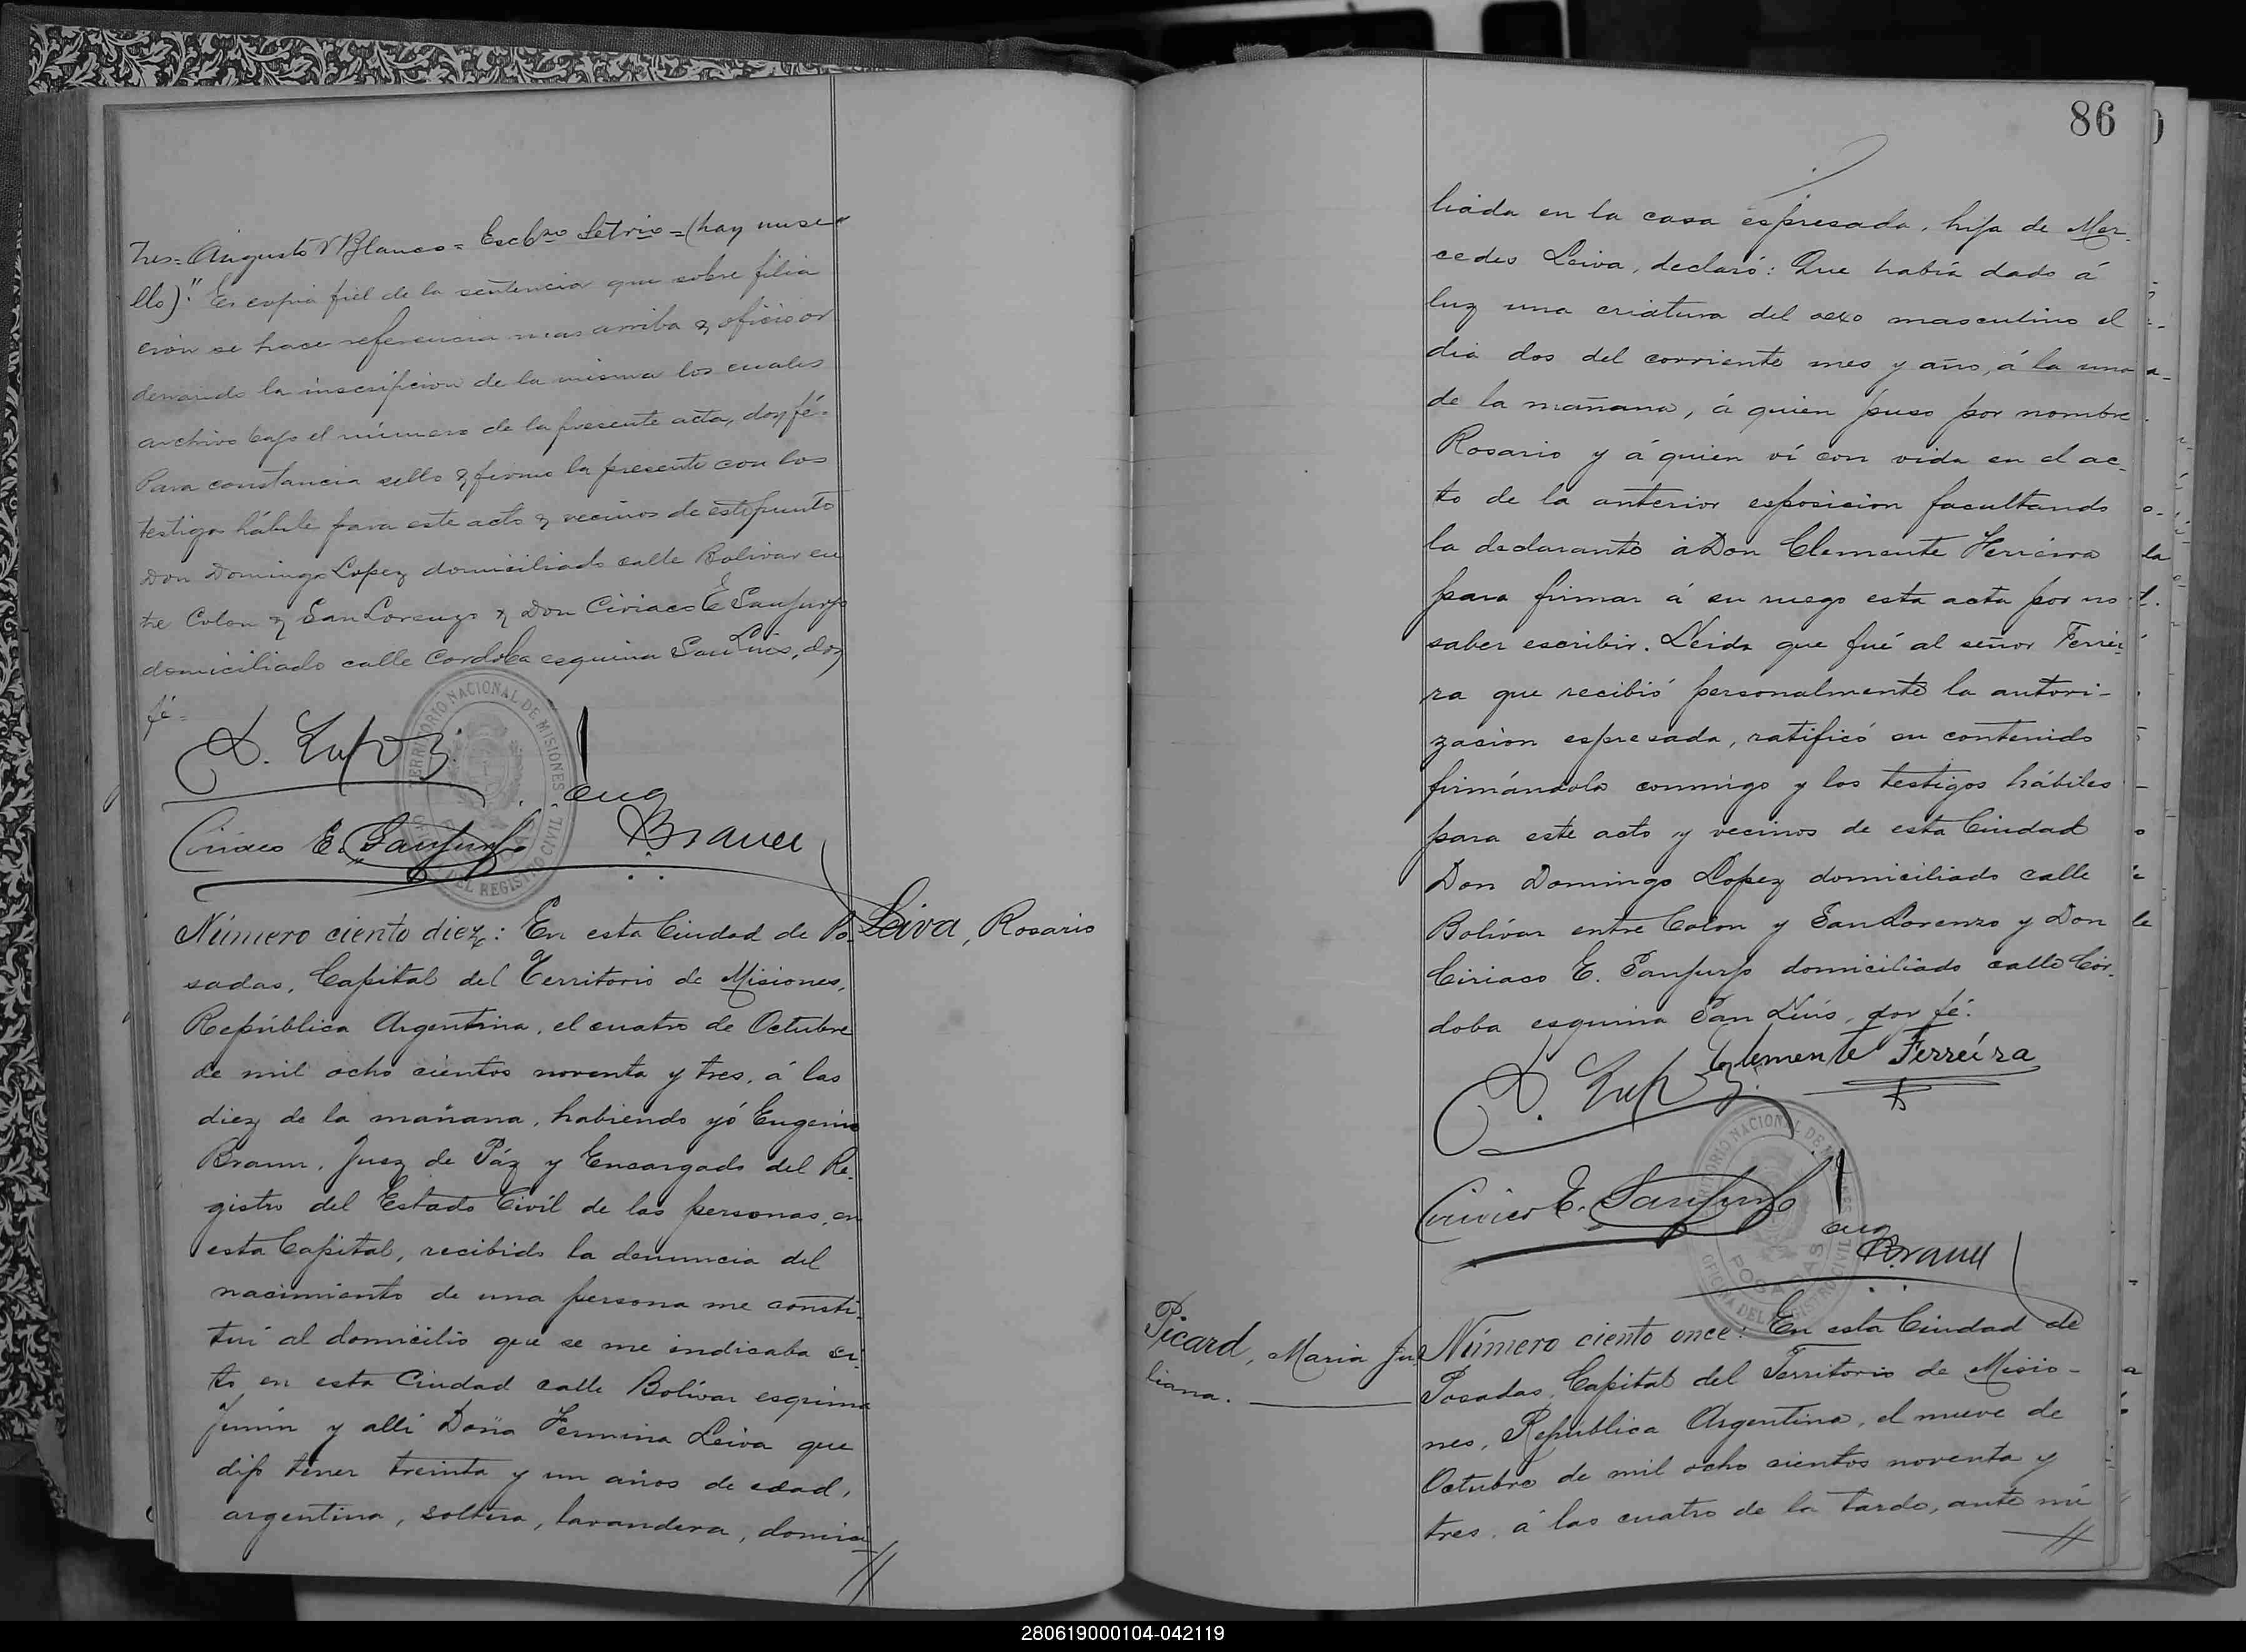 tres = Augusto V. Blanco = Escbno Setrio = (hay un se
llo)." Es copia fiel de la sentencia que sobre filia
ción se hace referencia mas arriba y oficio or
denando la inscripcion de la misma los cuales
archivo bajo el número de la presente acta, doy fé=
Para constancia sello y firmo la presente con los
testigos hábile para este acto y vecinos de este punto
Don Domingo Lopez domiciliado calle Bolivar en
tre Colon y San Lorenzo y Don Ciriaco E Sanjurjo
domiciliado calle Cordoba esquina San Luis, doy
fé=
D. Lopez
TERRITORIO NACIONAL DE MISIONES
OFICINA DEL REGISTRO CIVIL
Eug
Ciriaco E. Sanjurjo Braun
Número ciento diez: En esta Ciudad de Po-
Leiva, Rosario
sadas, Capital del Territorio de Misiones,
República Argentina, el cuatro de Octubre
de mil ocho cientos noventa y tres, á las
diez de la mañana, habiendo yó Eugenio
Braun, Juez de Páz y Encargado del Re-
gistro del Estado Civíl de las personas, en
esta Capital, recibido la denuncia del
nacimiento de una persona me consti-
tuí al domicilio que se me indicaba si-
to en esta Ciudad calle Bolívar esquina
Junin y allí Doña Fermina Leiva que
dijo tener treinta y un años de edad,
argentina, soltera, lavandera, domici
//
86
liada en la casa espresada, hija de Mer-
cedes Leiva, declaró: Que habia dado á
luz una criatura del sexo masculino el
dia dos del corriente mes y año, á la una
de la mañana, á quien puso por nombre
Rosario y á quien ví con vida en el ac-
to de la anterior esposicion facultando
la declarante á Don Clemente Ferreira
para firmar á su ruego esta acta por no
saber escribir. Leida que fué al señor Ferrei-
ra que recibió personalmente la autori-
zacion espresada, ratificó su contenido
firmándola conmigo y los testigos hábiles
para este acto y vecinos de esta Ciudad
Don Domingo Lopez domiciliado calle
Bolívar entre Colon y San Lorenzo y Don
Ciriaco E. Sanjurjo domiciliado calle Cór-
doba esquina San Luis, doy fé.
Clemente Ferreíra
D. Lopez
TERRITORIO NACIONAL DE MISIONES
POSADAS
OFICINA DEL REGISTRO CIVIL
Ciriaco E. Sanjurjo
Eug
Braun
Picard, Maria Ju
liana.
Número ciento once: En esta Ciudad de
Posadas, Capital del Territorio de Misio-
nes, República Argentina, el nueve de
Octubre de mil ocho cientos noventa y
tres, á las cuatro de la tarde, ante mi
//
280619000104-042119